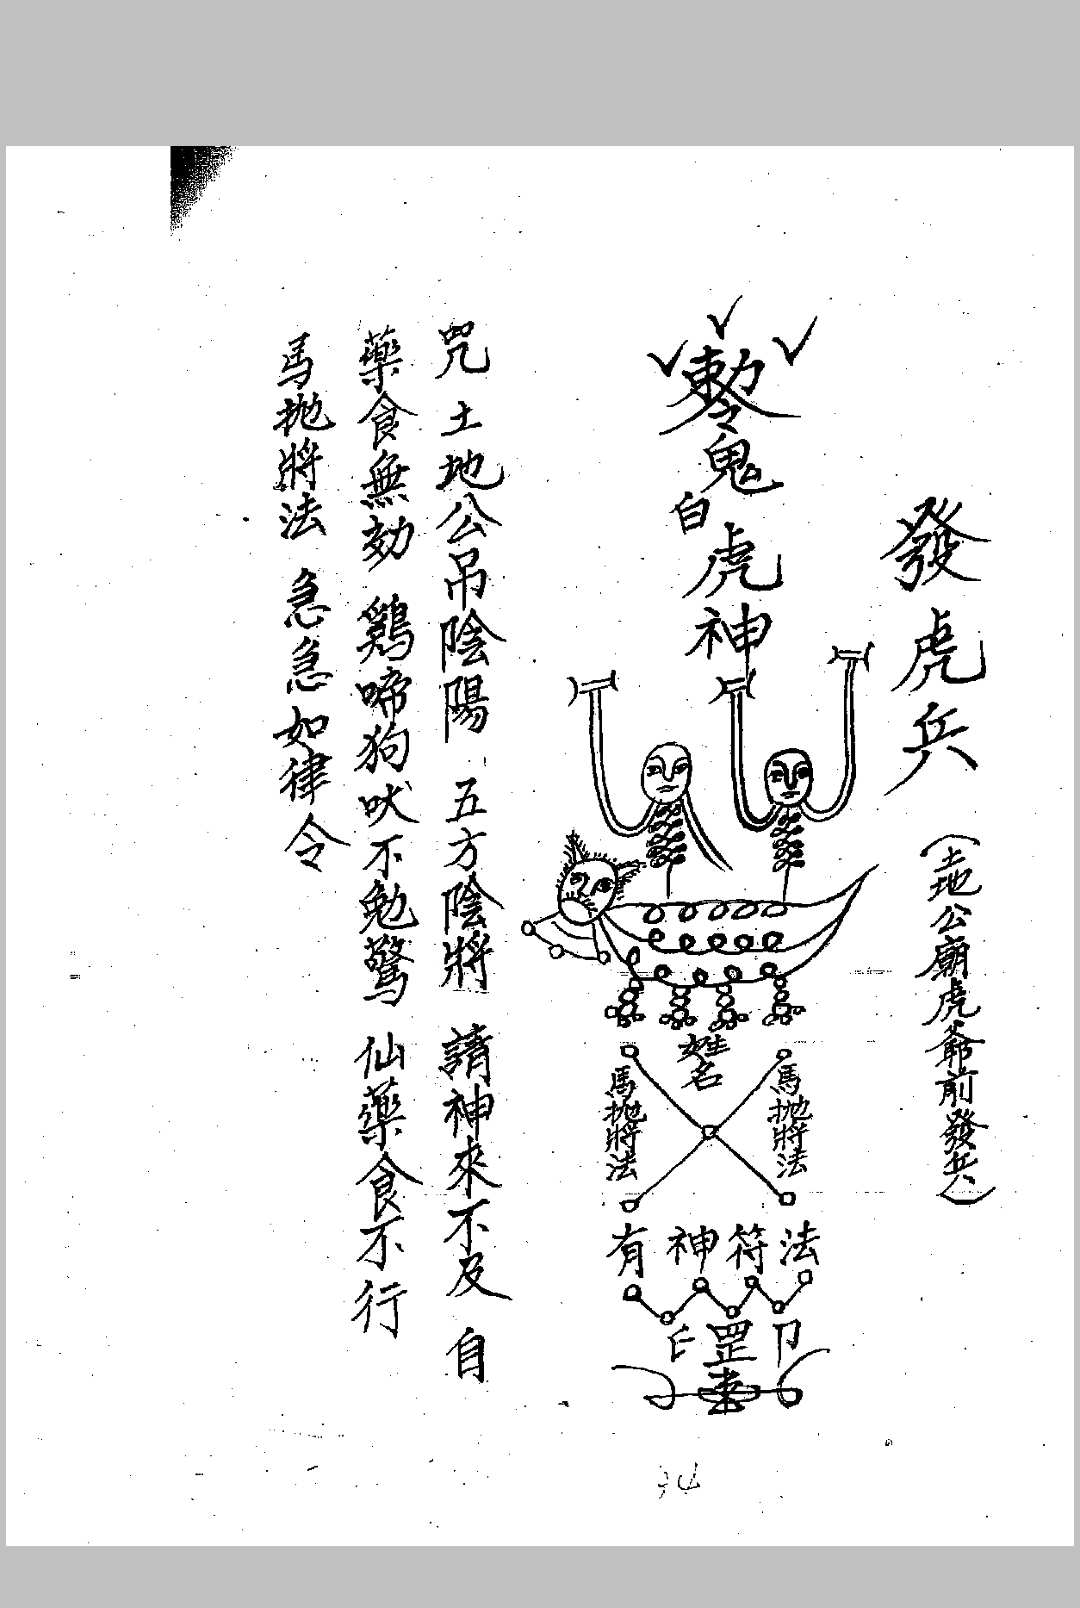 發虎兵
（土地公廟虎爺前發兵）
敕令
鬼
白虎神
姓名
馬拋將法
馬拋將法
有神符法
罡
咒 土地公吊陰陽 五方陰將 請神來不及 自
藥食無効 鷄啼狗吠不勉驚 仙藥食不行
馬拋將法 急急如律令
34